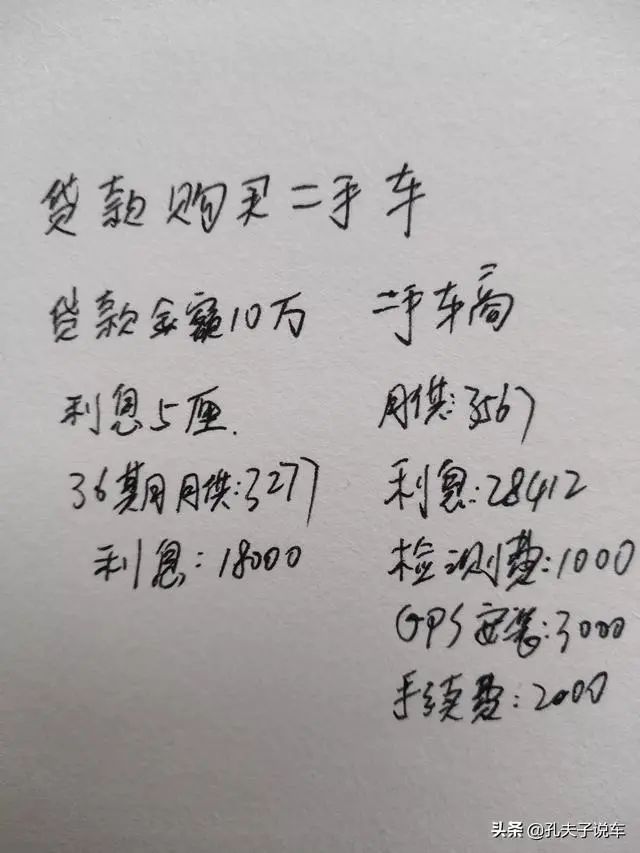 贷款购买二手车
贷款金额10万 二手车商
利息5厘.
月供:3567
36期月供:3277
利息:28412
利息:18000
检测费:1000
GPS安装:3000
手续费:2000
头条 @孔夫子说车